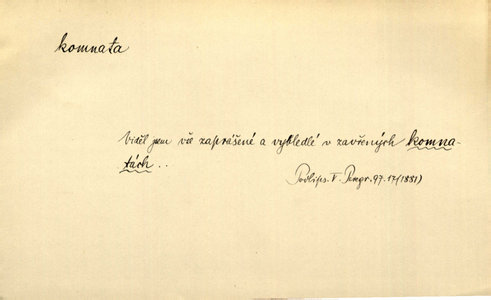 komnata
Viděl jsem vše zaprášené a vybledlé v zavřených komna-
tách . .
Podlips. V. Pengr. 97. 17 (1881)